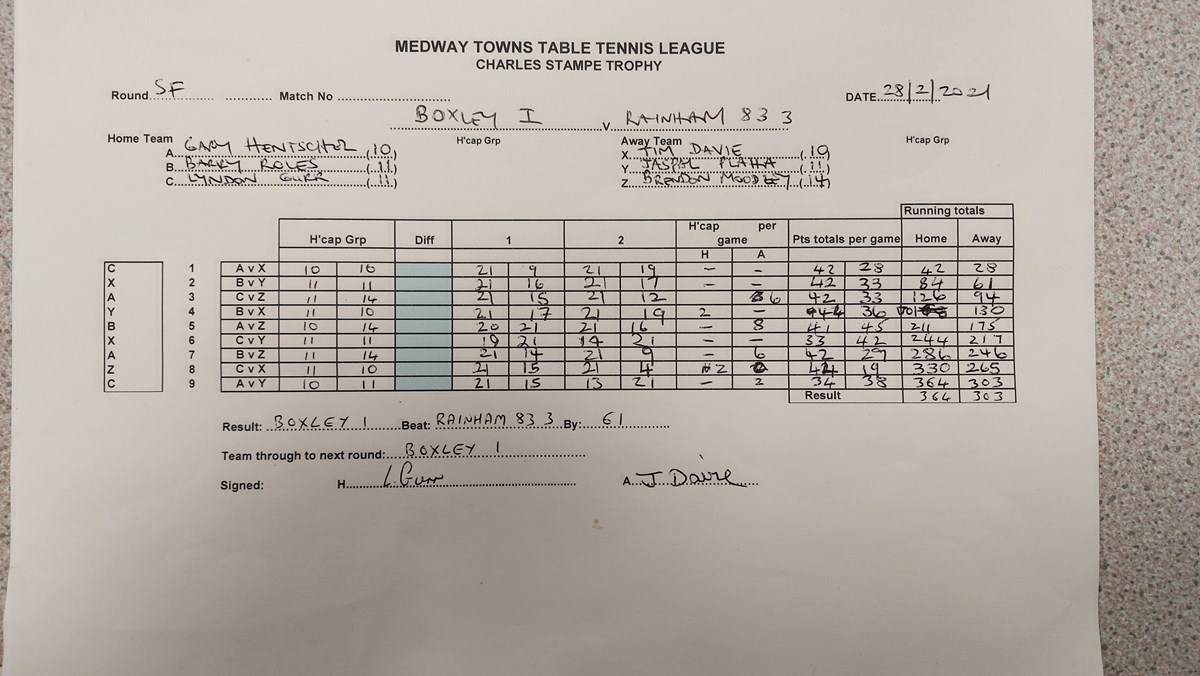 MEDWAY TOWNS TABLE TENNIS LEAGUE
CHARLES STAMPE TROPHY
Round SF Match No DATE 28/2/2021
BOXLEY I V RAINHAM 83 3
Home Team H'cap Grp Away Team H'cap Grp
A. GARY HENTSCHEL (10) X. TIM DAVIE (10)
B. BARRY ROLES (11) Y. JASPAL PLAHA (11)
C. LYNDON GURR (11) Z. BRENDON MOODLEY (14)
Running totals
H'cap Grp Diff 1 2 H'cap per game Pts totals per game Home Away
H A
C 1 A v X 10 10 21 9 21 19 – – 42 28 42 28
X 2 B v Y 11 11 21 16 21 17 – – 42 33 84 61
A 3 C v Z 11 14 21 15 21 12 6 42 33 126 94
Y 4 B v X 11 10 21 17 21 19 2 – 44 36 170 130
B 5 A v Z 10 14 20 21 21 16 – 8 41 45 211 175
X 6 C v Y 11 11 19 21 14 21 – – 33 42 244 217
A 7 B v Z 11 14 21 14 21 9 – 6 42 29 286 246
Z 8 C v X 11 10 21 15 21 4 2 44 19 330 265
C 9 A v Y 10 11 21 15 13 21 – 2 34 38 364 303
Result 364 303
Result: BOXLEY 1 Beat: RAINHAM 83 3 By: 61
Team through to next round: BOXLEY 1
Signed: H L. Gurr A J Davie